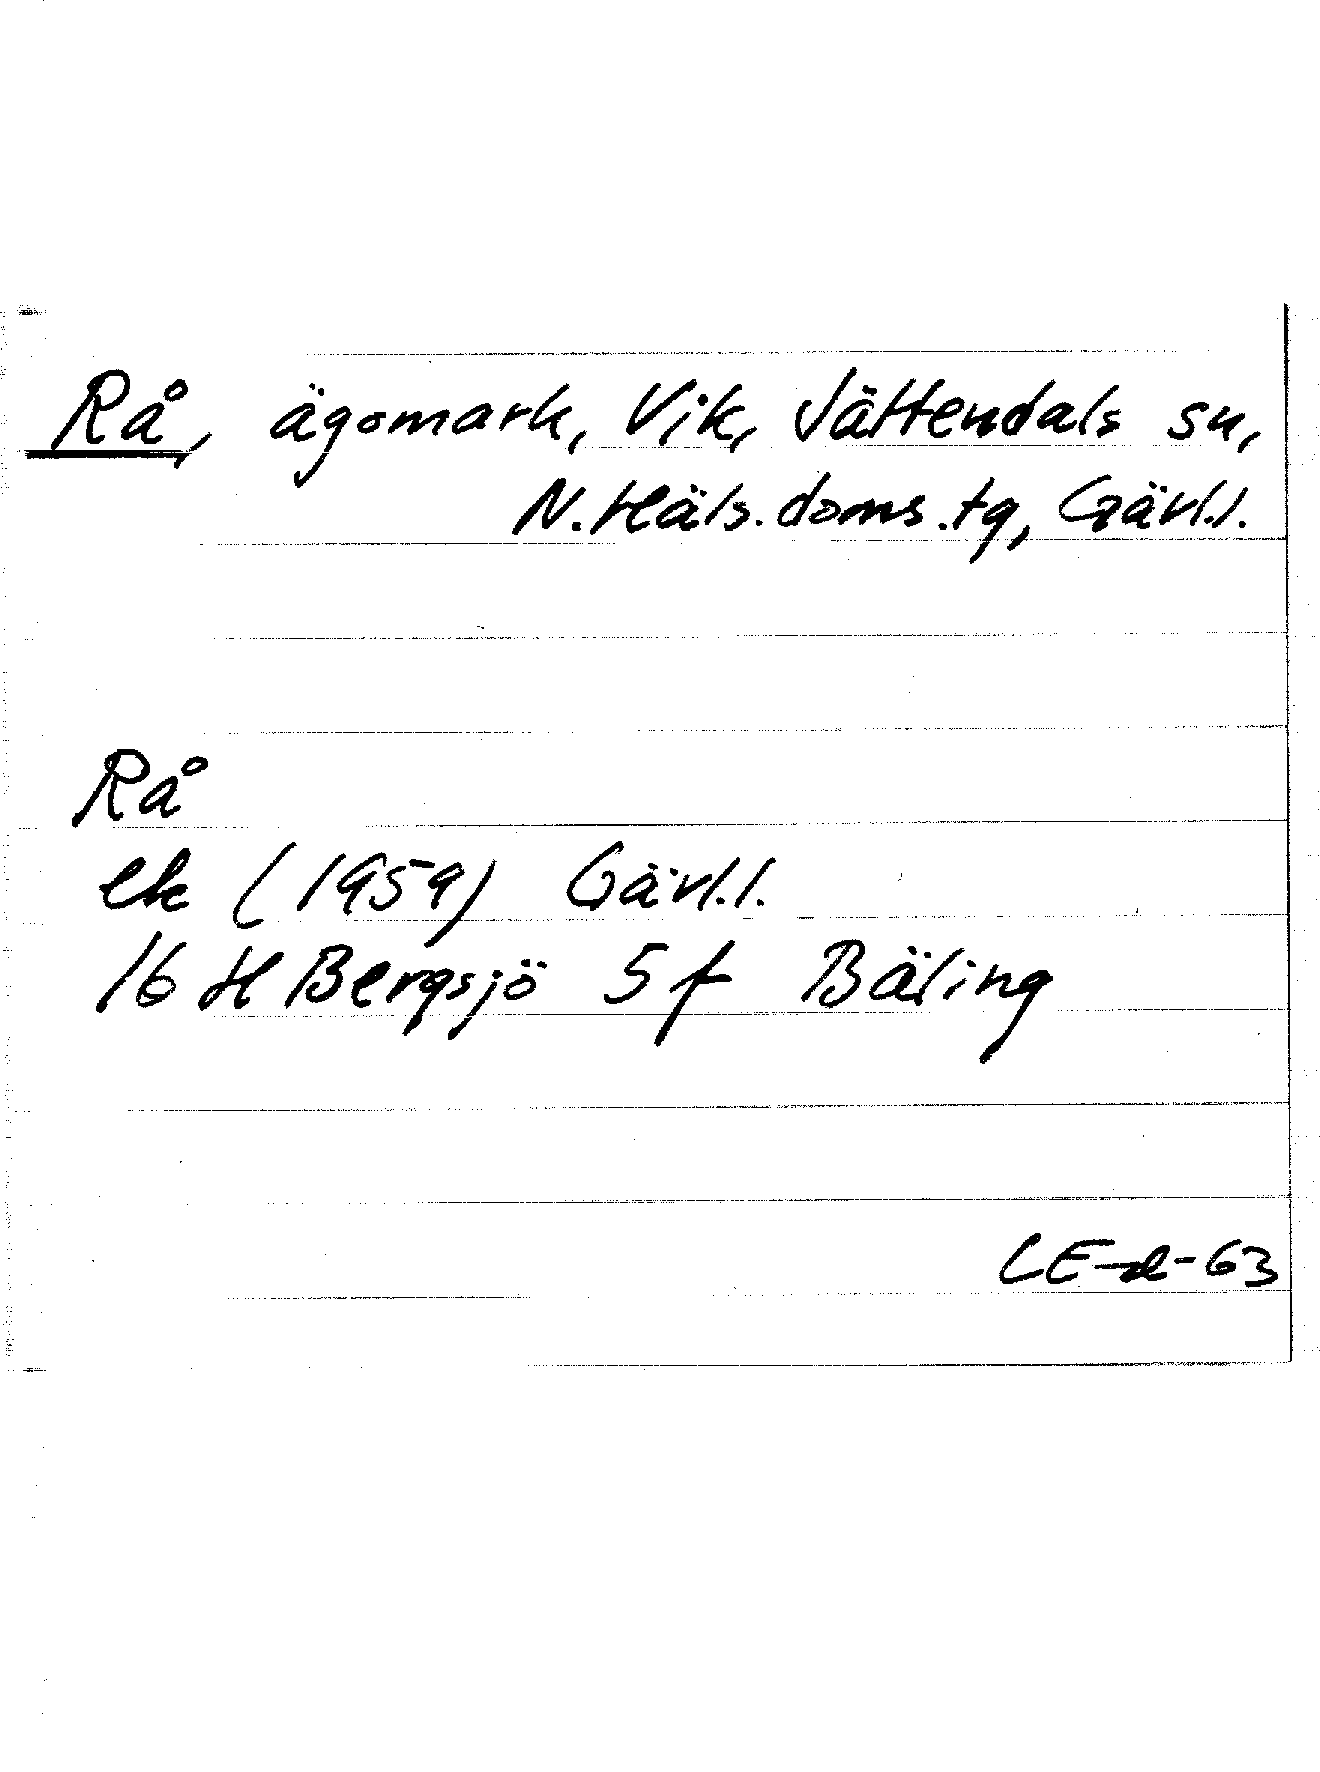 Rå, ägomark, Vik, Jättendals sn,
N. Häls. doms. tg, Gävl.l.
Rå
ek (1959) Gävl.l.
16 H Bergsjö 5 f Bäling
LE-d-63